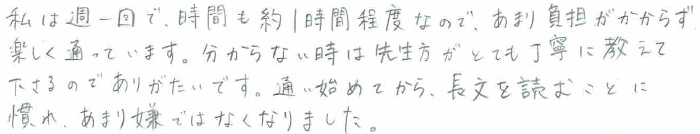 私は週一回で、時間も約1時間程度なので、あまり負担がかからず
楽しく通っています。分からない時は先生方がとても丁寧に教えて
下さるのでありがたいです。通い始めてから、長文を読むことに
慣れ、あまり嫌ではなくなりました。